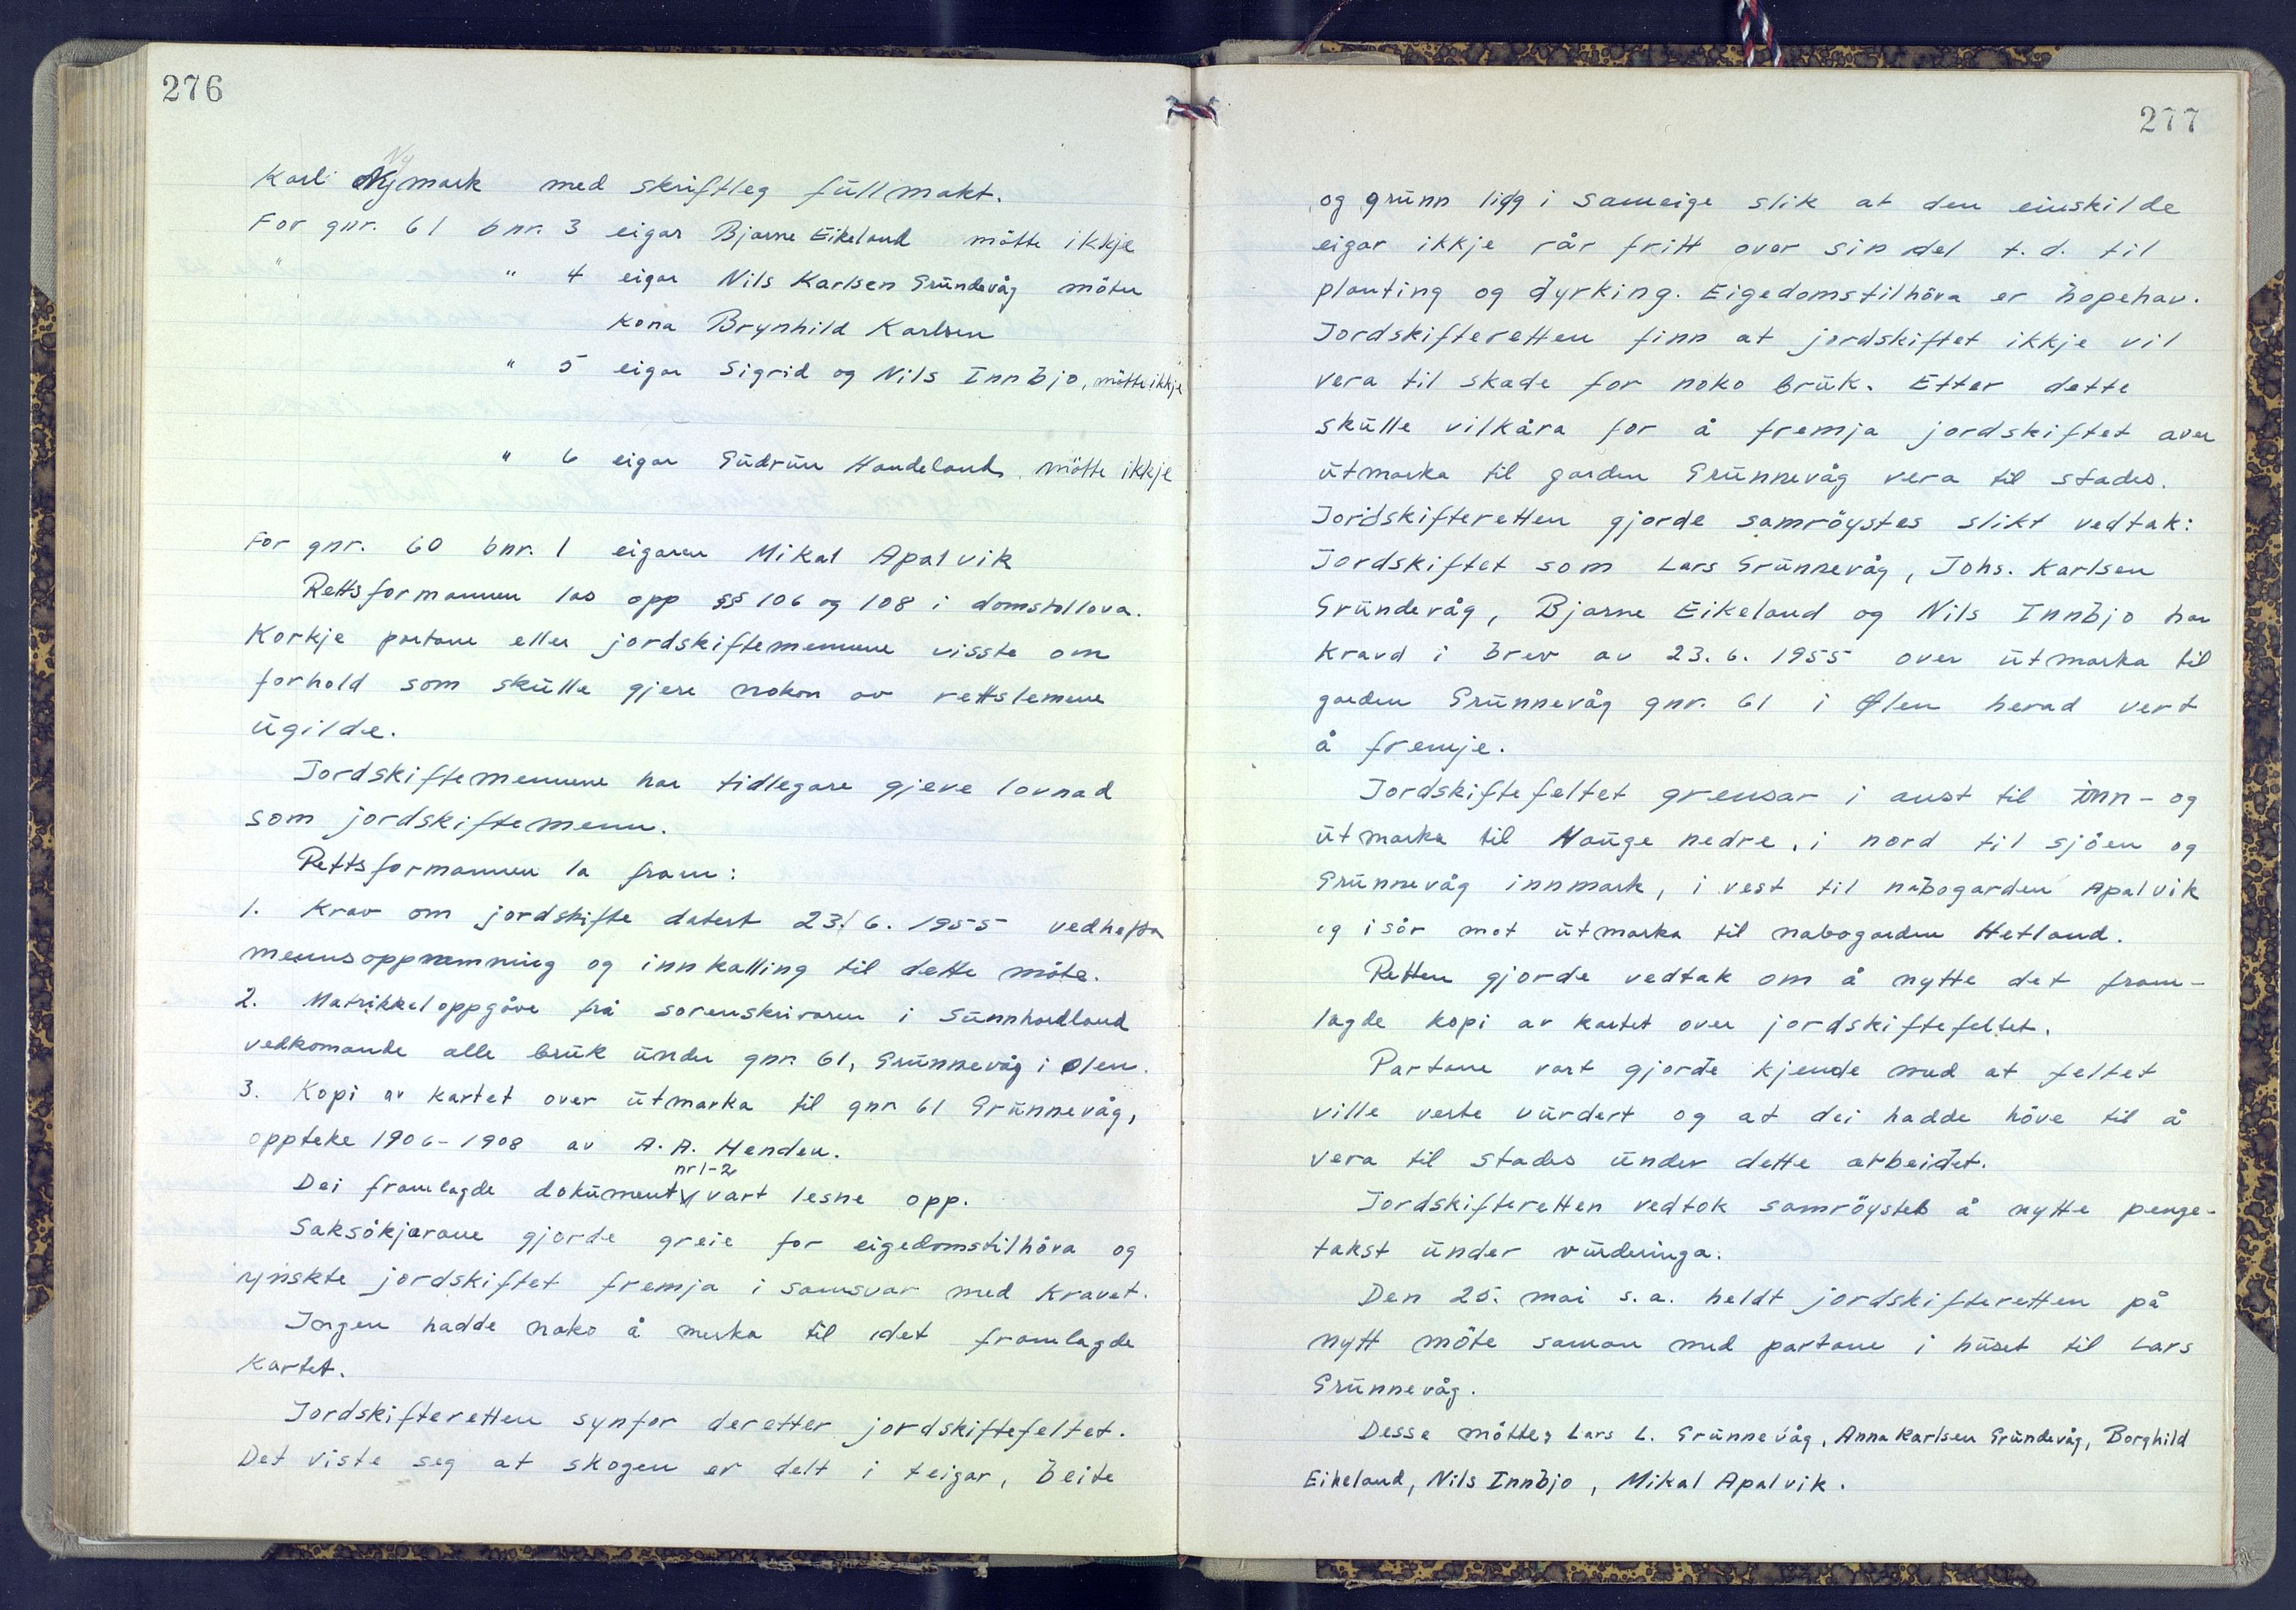 276
Ny
Karl Nymark med skriftleg fullmakt.
For gnr. 61 bnr. 3 eigar Bjarne Eikeland møtte ikkje
" " 4 eigar Nils Karlsen Grundevåg møter
kona Brynhild Karlsen
" 5 eigar Sigrid og Nils Innbjo, møtte ikkje
" 6 eigar Gudrun Handeland, møtte ikkje
For gnr. 60 bnr. 1 eigaren Mikal Apalvik
Rettsformannen las opp §§ 106 og 108 i domstollova.
Korkje partane eller jordskiftemennene visste om
forhold som skulle gjere nokon av rettslemene
ugilde.
Jordskiftemennene har tidlegare gjeve lovnad
som jordskiftemenn.
Rettsformannen la fram:
1. Krav om jordskifte datert 23/6. 1955 vedhefta
mennsoppnemning og innkalling til dette møte.
2. Matrikkeloppgåve frå sorenskrivaren i Sunnhordland
vedkomande alle bruk under gnr. 61, Grunnevåg i Ølen.
3. Kopi av kartet over utmarka til gnr 61 Grunnevåg,
oppteke 1906-1908 av A. A. Henden.
nr 1-2
Dei framlagde dokument vart lesne opp.
Saksøkjarane gjorde greie for eigedomstilhøva og
ynskte jordskiftet fremja i samsvar med kravet.
Ingen hadde noko å merka til det framlagde
kartet.
Jordskifteretten synfor deretter jordskiftefeltet.
Det viste seg at skogen er delt i teigar, beite
277
og grunn ligg i sameige slik at den einskilde
eigar ikkje rår fritt over sin del t.d. til
planting og dyrking. Eigedomstilhøva er hopehav.
Jordskifteretten finn at jordskiftet ikkje vil
vera til skade for noko bruk. Etter dette
skulle vilkåra for å fremja jordskiftet over
utmarka til garden Grunnevåg vera til stades.
Jordskifteretten gjorde samrøystes slikt vedtak:
Jordskiftet som Lars Grunnevåg, Johs. Karlsen
Grundevåg, Bjarne Eikeland og Nils Innbjo har
kravd i brev av 23. 6. 1955 over utmarka til
garden Grunnevåg gnr. 61 i Ølen herad vert
å fremje.
Jordskiftefeltet grensar i aust til inn- og
utmarka til Hauge nedre, i nord til sjøen og
Grunnevåg innmark, i vest til nabogarden Apalvik
og i sør mot utmarka til nabogarden Hetland.
Retten gjorde vedtak om å nytte det fram-
lagde kopi av kartet over jordskiftefeltet.
Partane vart gjorde kjende med at feltet
ville verte vurdert og at dei hadde høve til å
vera til stades under dette arbeidet.
Jordskifteretten vedtok samrøystes å nytte penge-
takst under vurderinga.
Den 25. mai s.a. heldt jordskifteretten på
nytt møte saman med partane i huset til Lars
Grunnevåg.
Desse møtte, Lars L. Grunnevåg, Anna Karlsen Grundevåg, Borghild
Eikeland, Nils Innbjo, Mikal Apalvik.